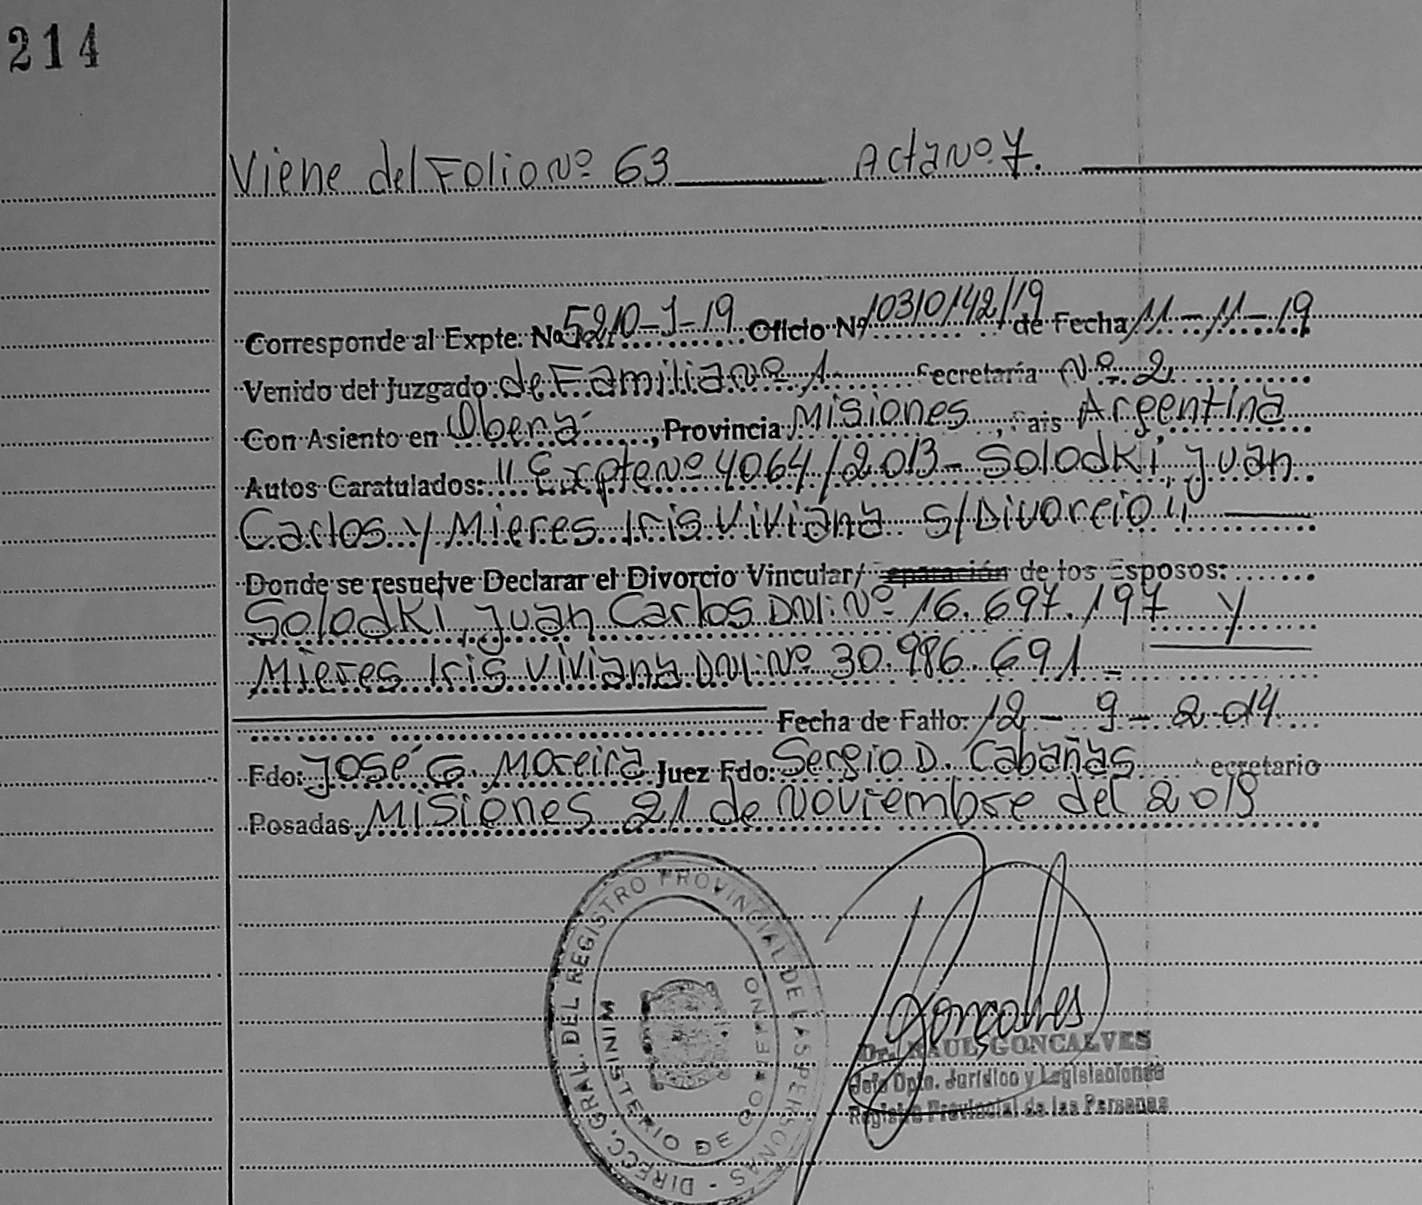 214
Viene del Folio Nº 63 Acta Nº 7.
Corresponde al Expte. Nº 5210-J-19 Oficio Nº 10310142/19 de Fecha 11-11-19
Venido del Juzgado de Familia Nº 1 Secretaría Nº 2
Con Asiento en Oberá, Provincia Misiones País Argentina
Autos Caratulados: "Expte Nº 4064/2013 - Solodki, Juan
Carlos y Mieres Iris Viviana s/Divorcio"
Donde se resuelve Declarar el Divorcio Vincular/ de los Esposos:
Solodki, Juan Carlos DNI: Nº 16.697.197 y
Mieres Iris Viviana DNI: Nº 30.986.691 -
Fecha de Fallo: 12-9-2014
Fdo: José G. Moreira Juez Fdo: Sergio D. Cabañas Secretario
Posadas, Misiones 21 de Noviembre del 2019
DIRECC. GRAL. DEL REGISTRO PROVINCIAL DE LAS PERSONAS -
MINISTERIO DE GOBIERNO
Gonçalves
Dr. RAUL GONCALVES
Jefe Dpto. Jurídico y Legislaciones
Registro Provincial de las Personas